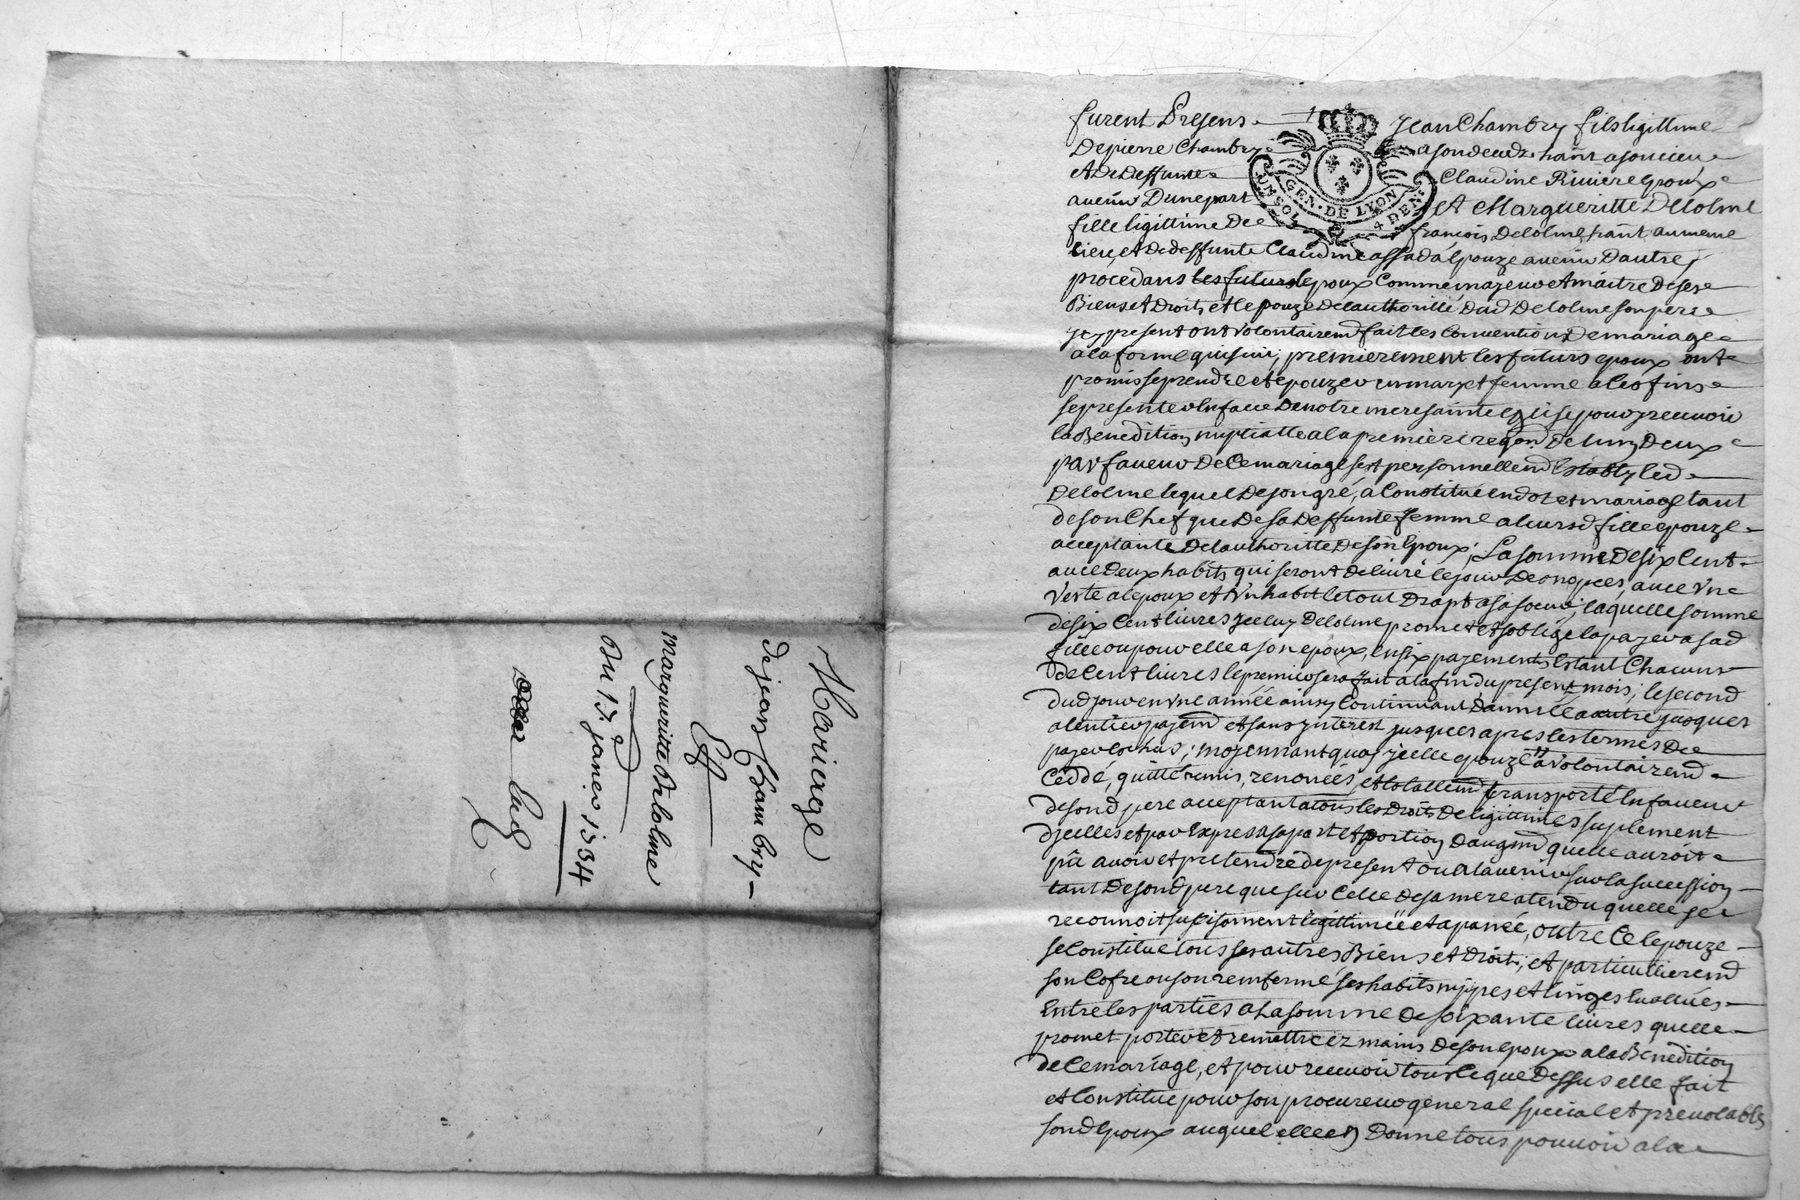 Mariage
de jean Chambry
Et
margueritte Delolme
Du 13e janer 1734
furent Presens Jean Chambry fils ligittime
De pierre Chambry hant a
Et De deffunte Claudine Riviere Epoux
avenir Dune part Et Margueritte Delolme
fille ligittime De francois Delolme hant au meme
lieu, et De deffunte Claudine assada Epouze avenir Dautre,
procedans les futurs Epoux Comme majeur et maitre De ses
Biens et Droits, et lepouze De lauthoritté Dud Delolme son pere
jcy present ont volontairemt fait les Conventions De mariage
a la forme qui suit, premierement les futurs epoux ont
promis se prendre et epouzer en mary et femme a les fins
se presenter En face De notre mere sainte eglise pour y recevoir
la Benedition nuptialle a la premiere reqon De luny Deux
par faveur De Ce mariage s'est personnellemt Estably led
Delolme lequel De son gré, a Constitué en dot et mariage tant
de son Chef que De sa Deffunte femme a leursd fille epouze
acceptante De lauthoritte De son Epoux, La somme De six Cent
avec Deux habits qui seront De livré le jour De nopces, avec vne
veste a lepoux et vn habit le tout Drapt a sa soeur, laquelle somme
de six Cent livres jceluy Delolme promet et soblige la payer a sad
fille ou pour elle a son epoux, En six payements Estant Chacuns
De Cent livres le premier sera fait a la fin du present mois, le second
Dud jour en vne année ainsy Continuant Dannee a autre jusques
a lentier payemt et sans jnterest jusques apres les termes De
payer Echus, moyennant quoy jcelle epouze a volontairemt
Ceddé, quitté remis, renoncés, et totallemt transporté En faveur
de sond pere acceptant a tous les Droits De ligittimes suplement
Djcelles et par Expres a sa part et portion Daugmt quelle auroit
pû avoir et pretendre de present ou a lavenir sur la succession
tant De sond pere que sur Celle De sa mere atendu quelle se
reconnoit sufisament legittimée et apanée, outre Ce lepouze
se Constitue tous ses autres Biens et Droits, et particullieremt
son Cofre ou son remfermé ses habits nippes et linges Evallués
Entre les parties a La somme De soixante livres quelle
promet porter et remettre ez mains De son epoux a la Benedition
de Ce mariage, et pour recevoir tout Ce que Dessus elle fait
et Constitue pour son procureur general special et prevolable
sond Epoux auquel elle Donne tous pouvoir a la
GEN. DE LYON
UN SOL 4 DEN.